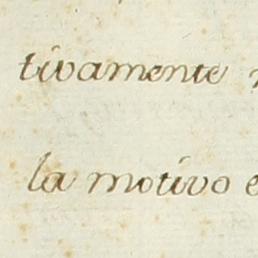 tivamente
la motivo